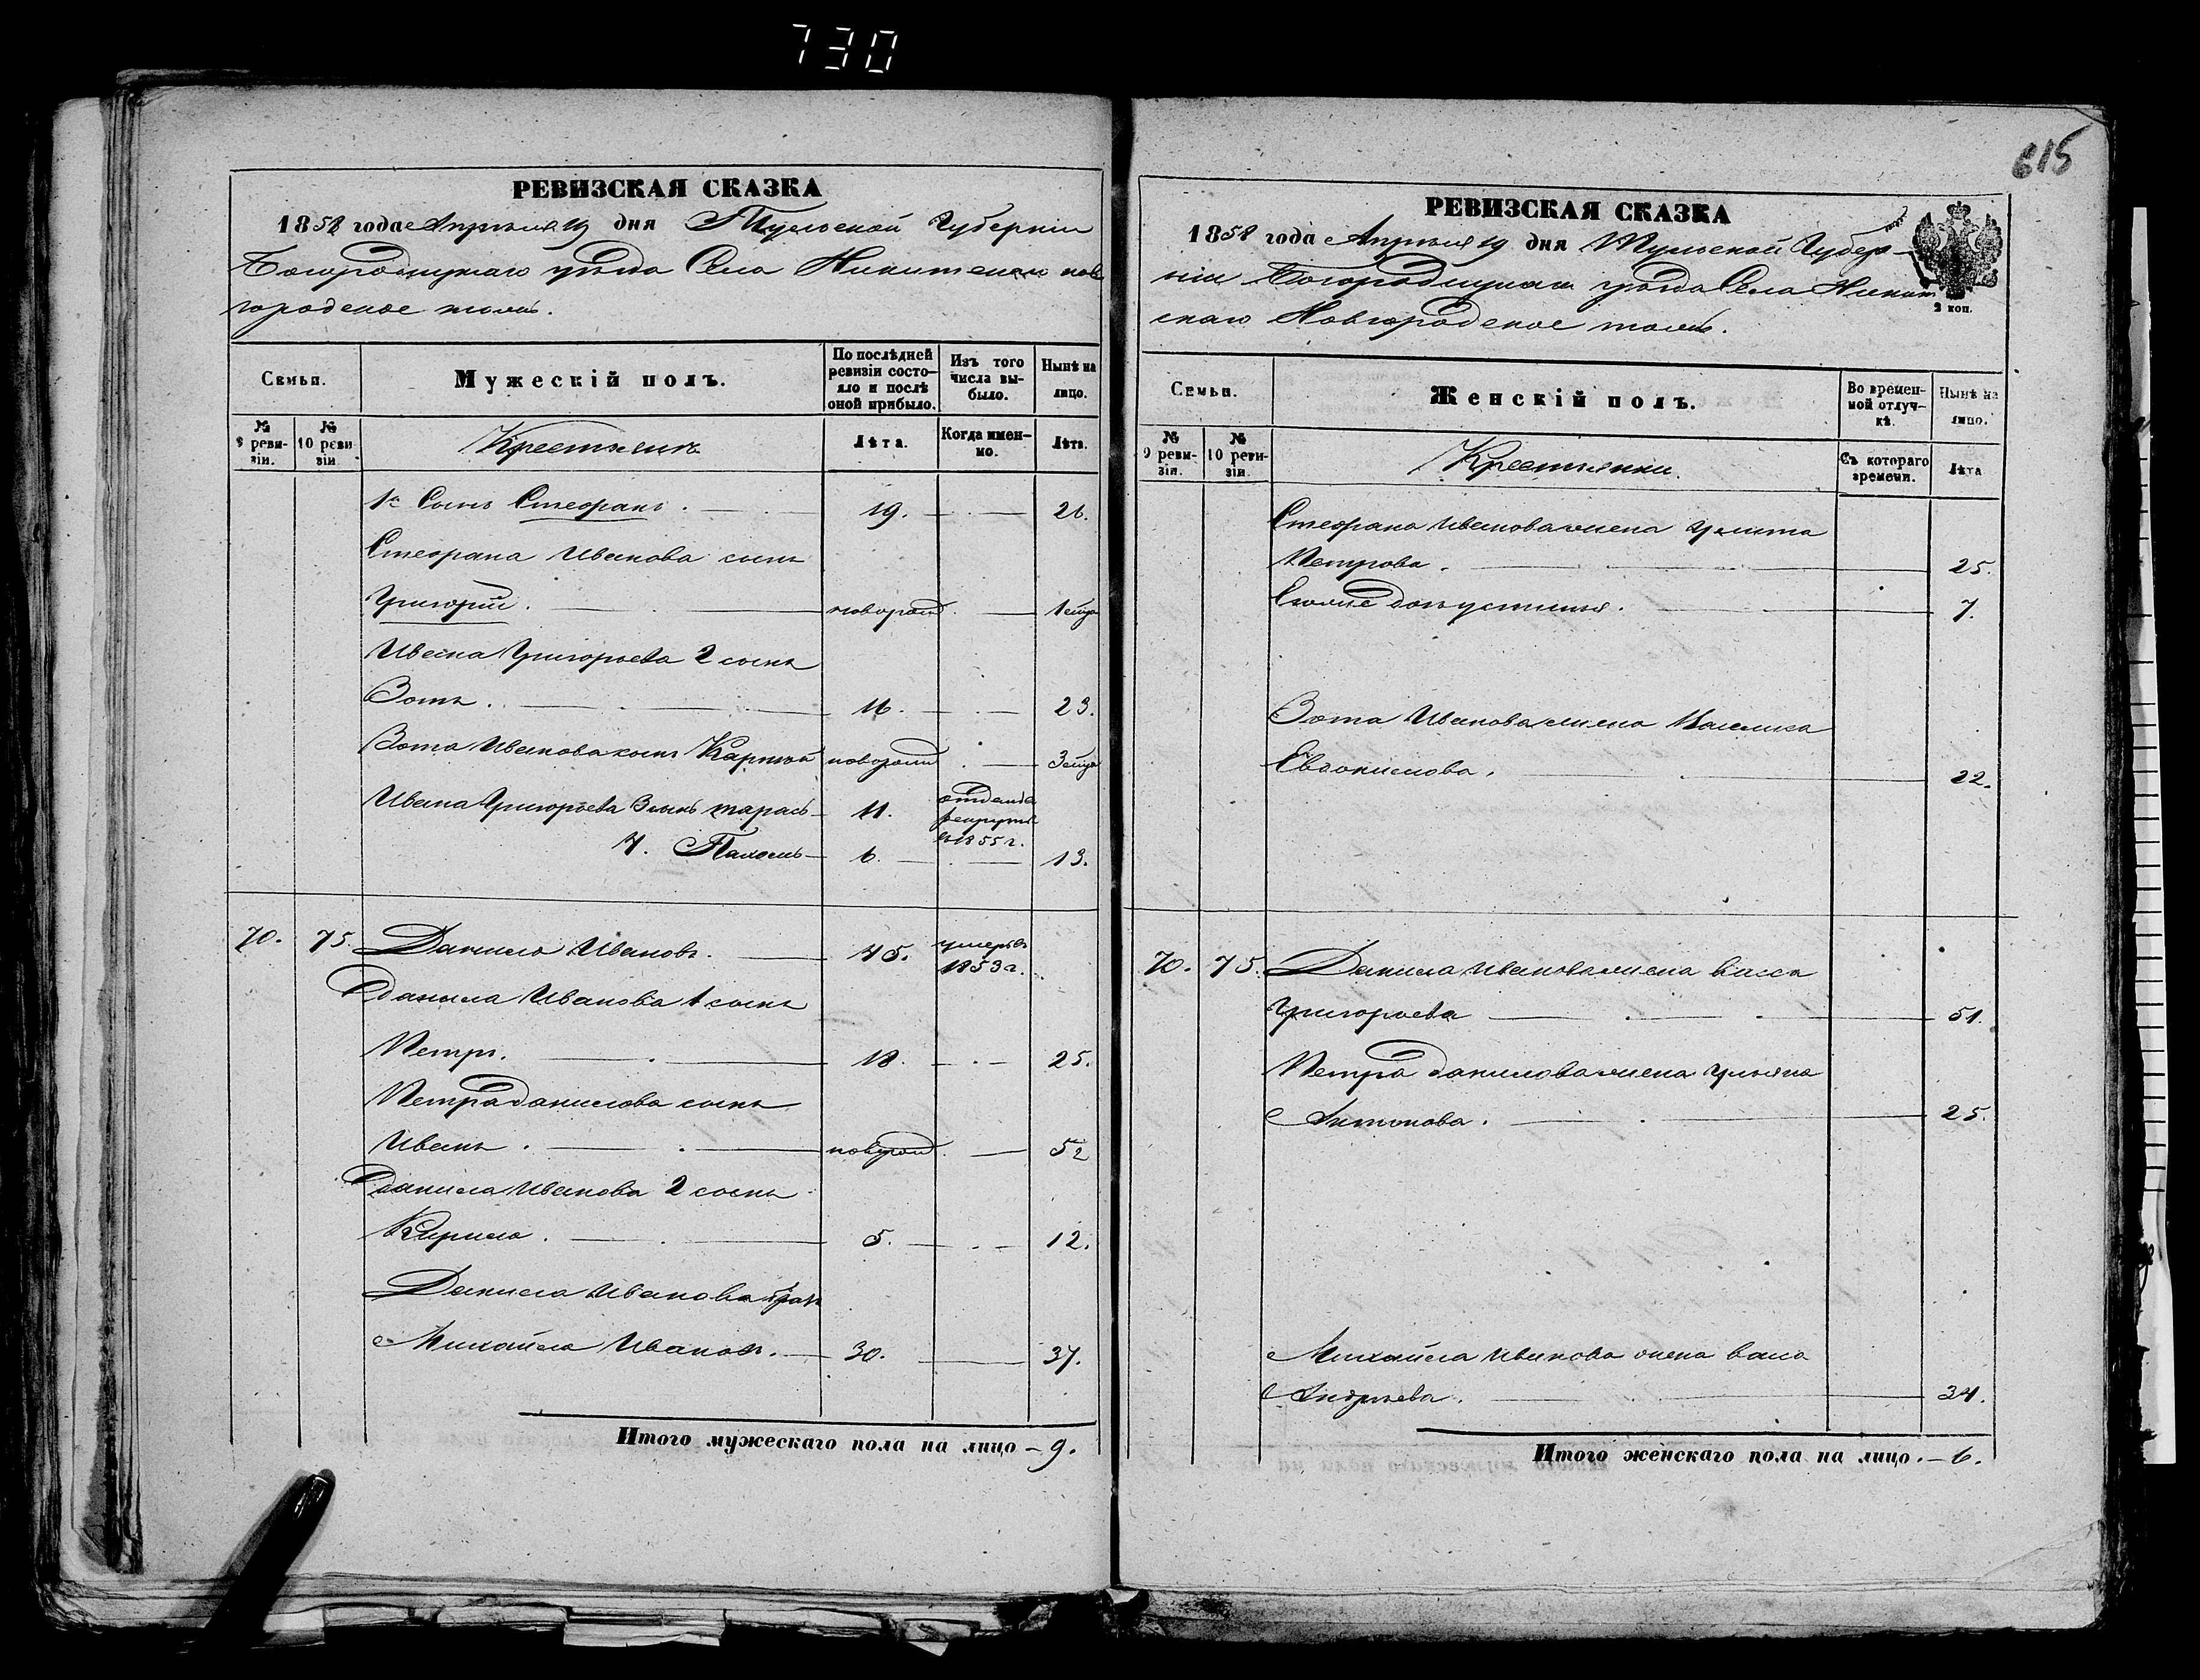 730
615
РЕВИЗСКАЯ СКАЗКА
1858 года Апрѣля 19 дня Тульской Губерніи
Богородицкаго уѣзда Села Никитскаго нов
городское тожъ.
Семьи.
Мужескій полъ.
По послѣдней ревизіи состояло и послѣ оной прибыло.
Изъ того числа выбыло.
Нынѣ на лицо.
№ 9 ревизіи.
№ 10 ревизіи
Крестьянъ
Лѣта.
Когда именно.
Лѣта.
1й Сынъ Стефанъ. 19. 26.
Стефана Иванова сынъ
Григорій. новорожд.
Ивана Григорьева 2 сынъ
Зотъ. 16. 23.
Зота Иванова сынъ Карпъ
Ивана Григорьева 3 сынъ Тарасъ 11. отданъ в рекруты в 1855 г.
4. Пахомъ 6. 13.
70. 75. Данило Ивановъ. 45. умеръ в 1853 г.
Данила Иванова 1 сынъ
Петръ. 18. 25.
Петра Данилова сынъ
Иванъ. новорожд. 5
Данила Иванова 2 сынъ
Кирило. 5. 12.
Данила Иванова братъ
Михайло Ивановъ. 30. 37.
Итого мужескаго пола на лицо - 9.
РЕВИЗСКАЯ СКАЗКА
1858 года Апрѣля 19 дня Тульской Губер-
ніи Богородицкаго уѣзда Села Никит
скаго Новгородское тожъ.
2 коп.
Семьи.
Женскій полъ.
Во временной отлучкѣ.
Нынѣ на лицо.
№ 9 ревизіи.
№ 10 ревизіи
Крестьянки.
Съ котораго времени.
Лѣта
Стефана Иванова жена Улита
Петрова. 25.
7.
Зота Иванова жена
Евдокимова. 22.
70. 75. Данила Иванова жена Васса
Григорьева 51.
Петра Данилова жена Ульяна
Антонова. 25.
Михайла Иванова жена Васа
Андреева. 34.
Итого женскаго пола на лицо. - 6.